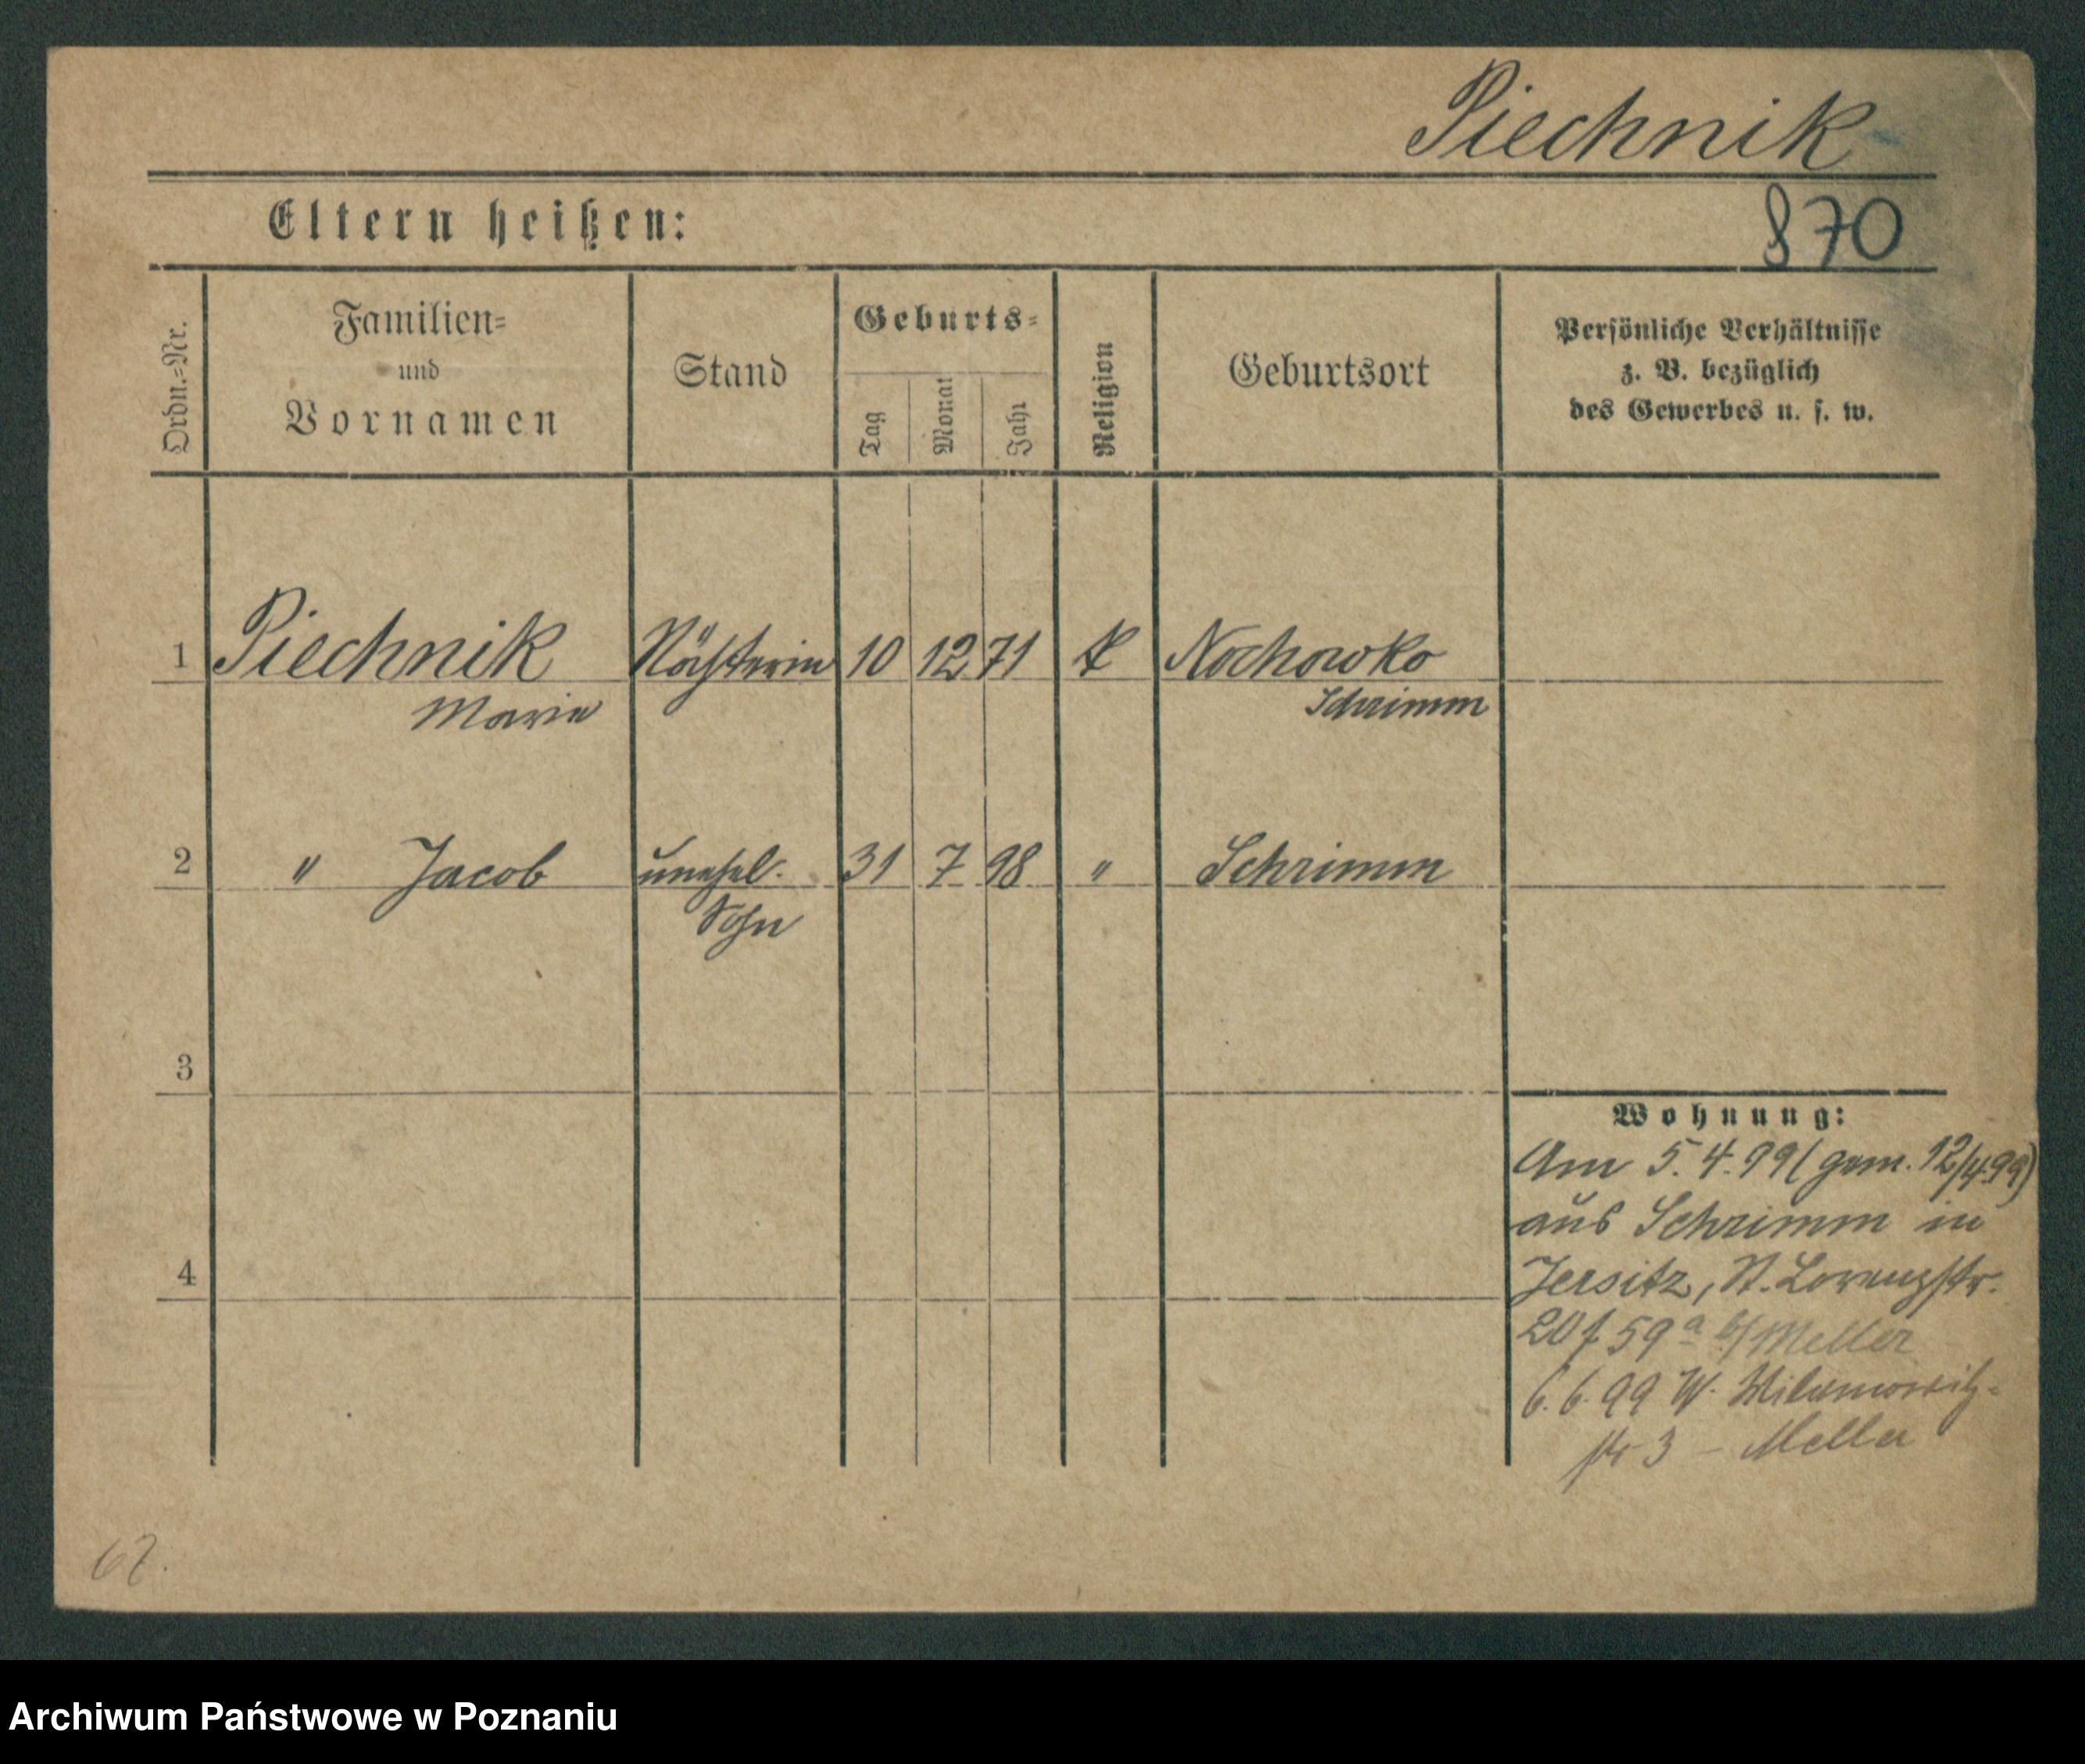 Piechnik
Eltern heißen:
870
Ordn.-Nr.
Familien-
und
Vornamen
Stand
Geburts-
Tag
Monat
Jahr
Religion
Geburtsort
Persönliche Verhältnisse
z. B. bezüglich
des Gewerbes u. s. w.
1 Piechnik 10 12 71 k Nochowko
Marie Schrimm
2 " Jacob unehel. 31 7 98 " Schrimm
Sohn
3
4
Wohnung:
Am 5. 4. 99 (gem. 12/4.99)
aus Schrimm in
Jersitz, St. Lorenzstr.
59a b/ Meller
6. 6. 99 W. Wilamowitz-
str 3 - Meller
Archiwum Państwowe w Poznaniu